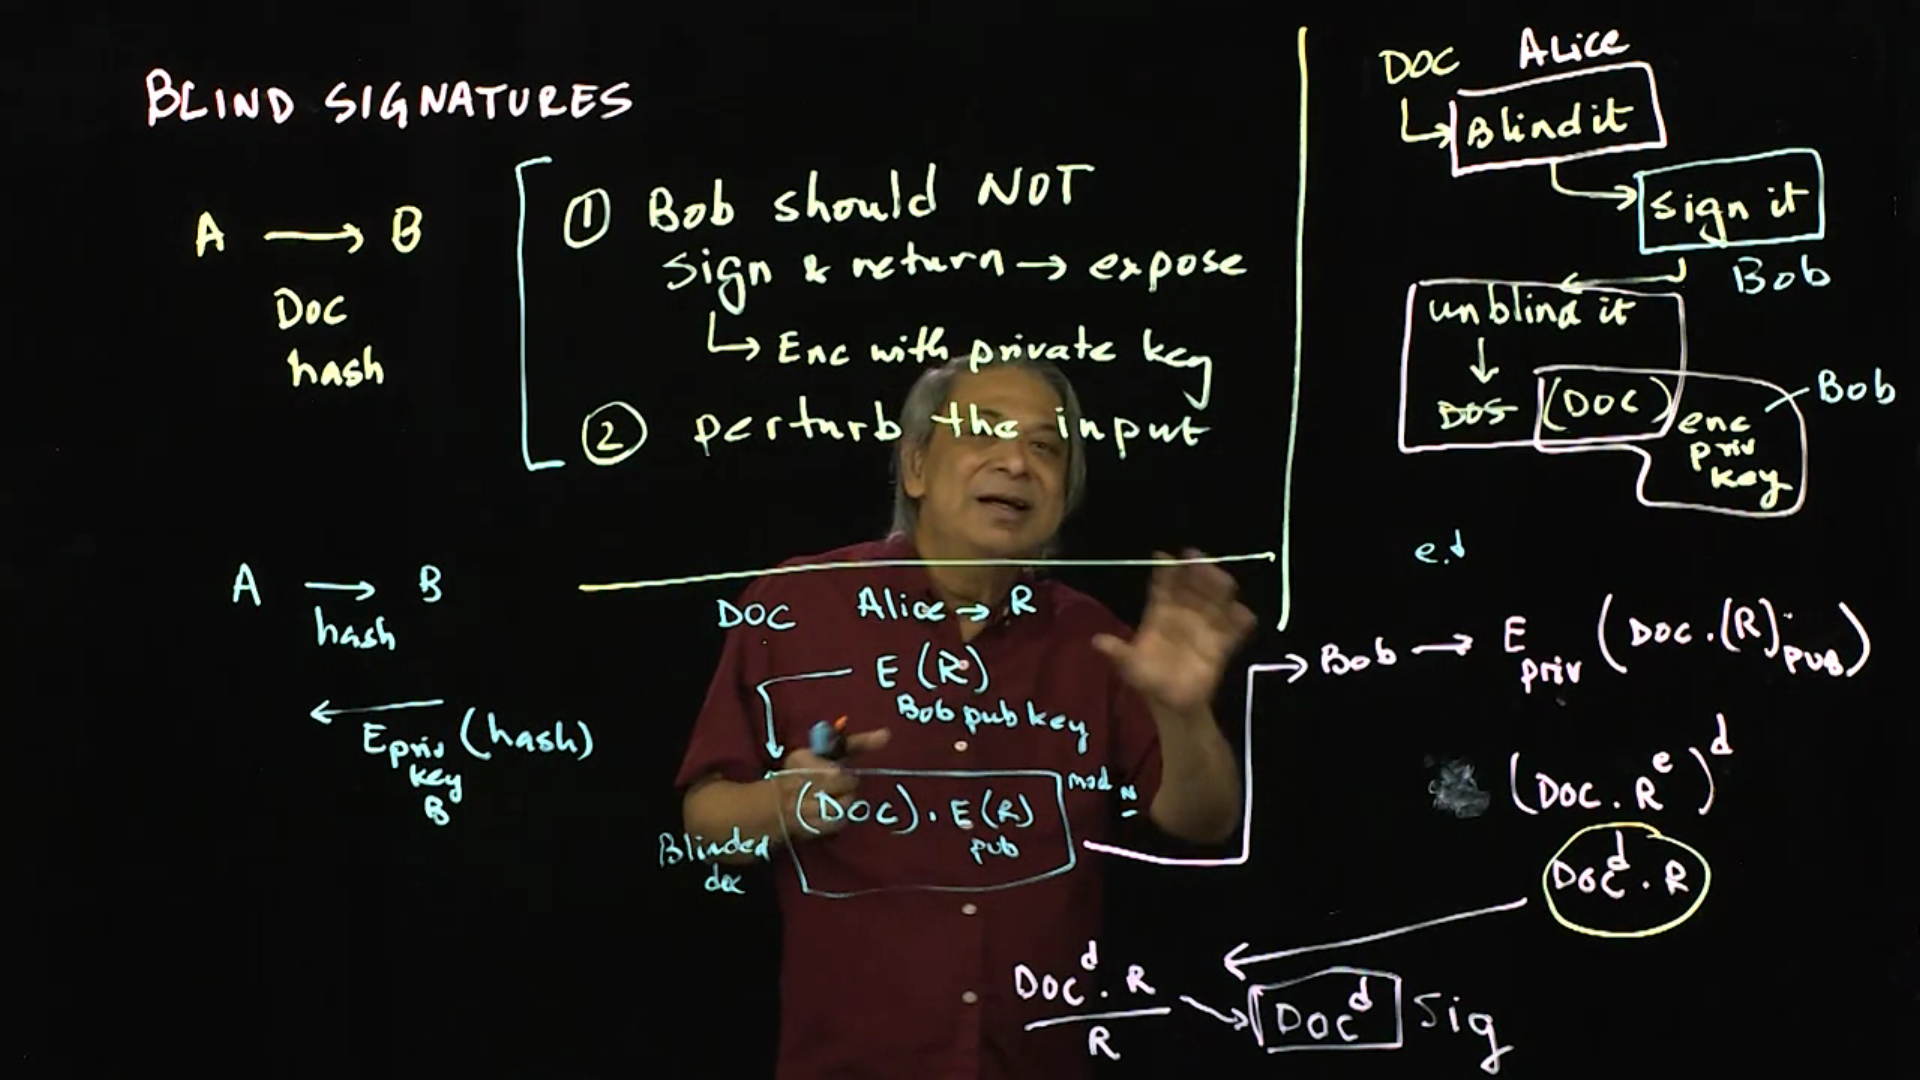 BLIND SIGNATURES
A → B
Doc
hash
① Bob should NOT
sign & return → expose
↳ Enc with private key
② perturb the input
DOC Alice
Blind it
sign it
Bob
unblind it
↓
DOS (DOC) enc priv key
Bob
A → B
hash
← E priv key B (hash)
DOC Alice → R
E (R)
Bob pub key
(DOC) . E (R) pub mod N
Blinded
doc
e.d
Bob → E priv (DOC . (R) pub)
(DOC . R^e)^d
DOC^d . R
DOC^d . R
R
DOC^d Sig